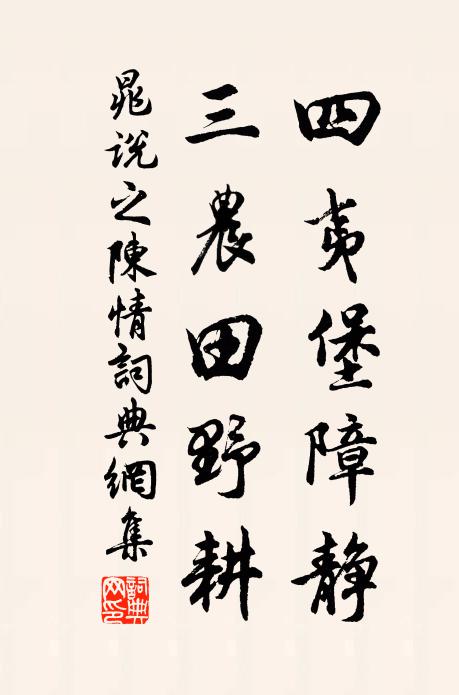 四夷堡障静
三農田野耕
晁说之陳情詞典網集
詞典網印